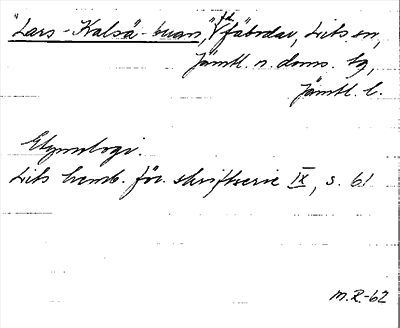 "Lars-Kalsä-buan," fd fäbodar, Lits sn,
Jämtl. n. doms. tg,
Jämtl. l.
Etymologi.
Lits hemb. för. skriftserie IX, s. 61
M.R.-62